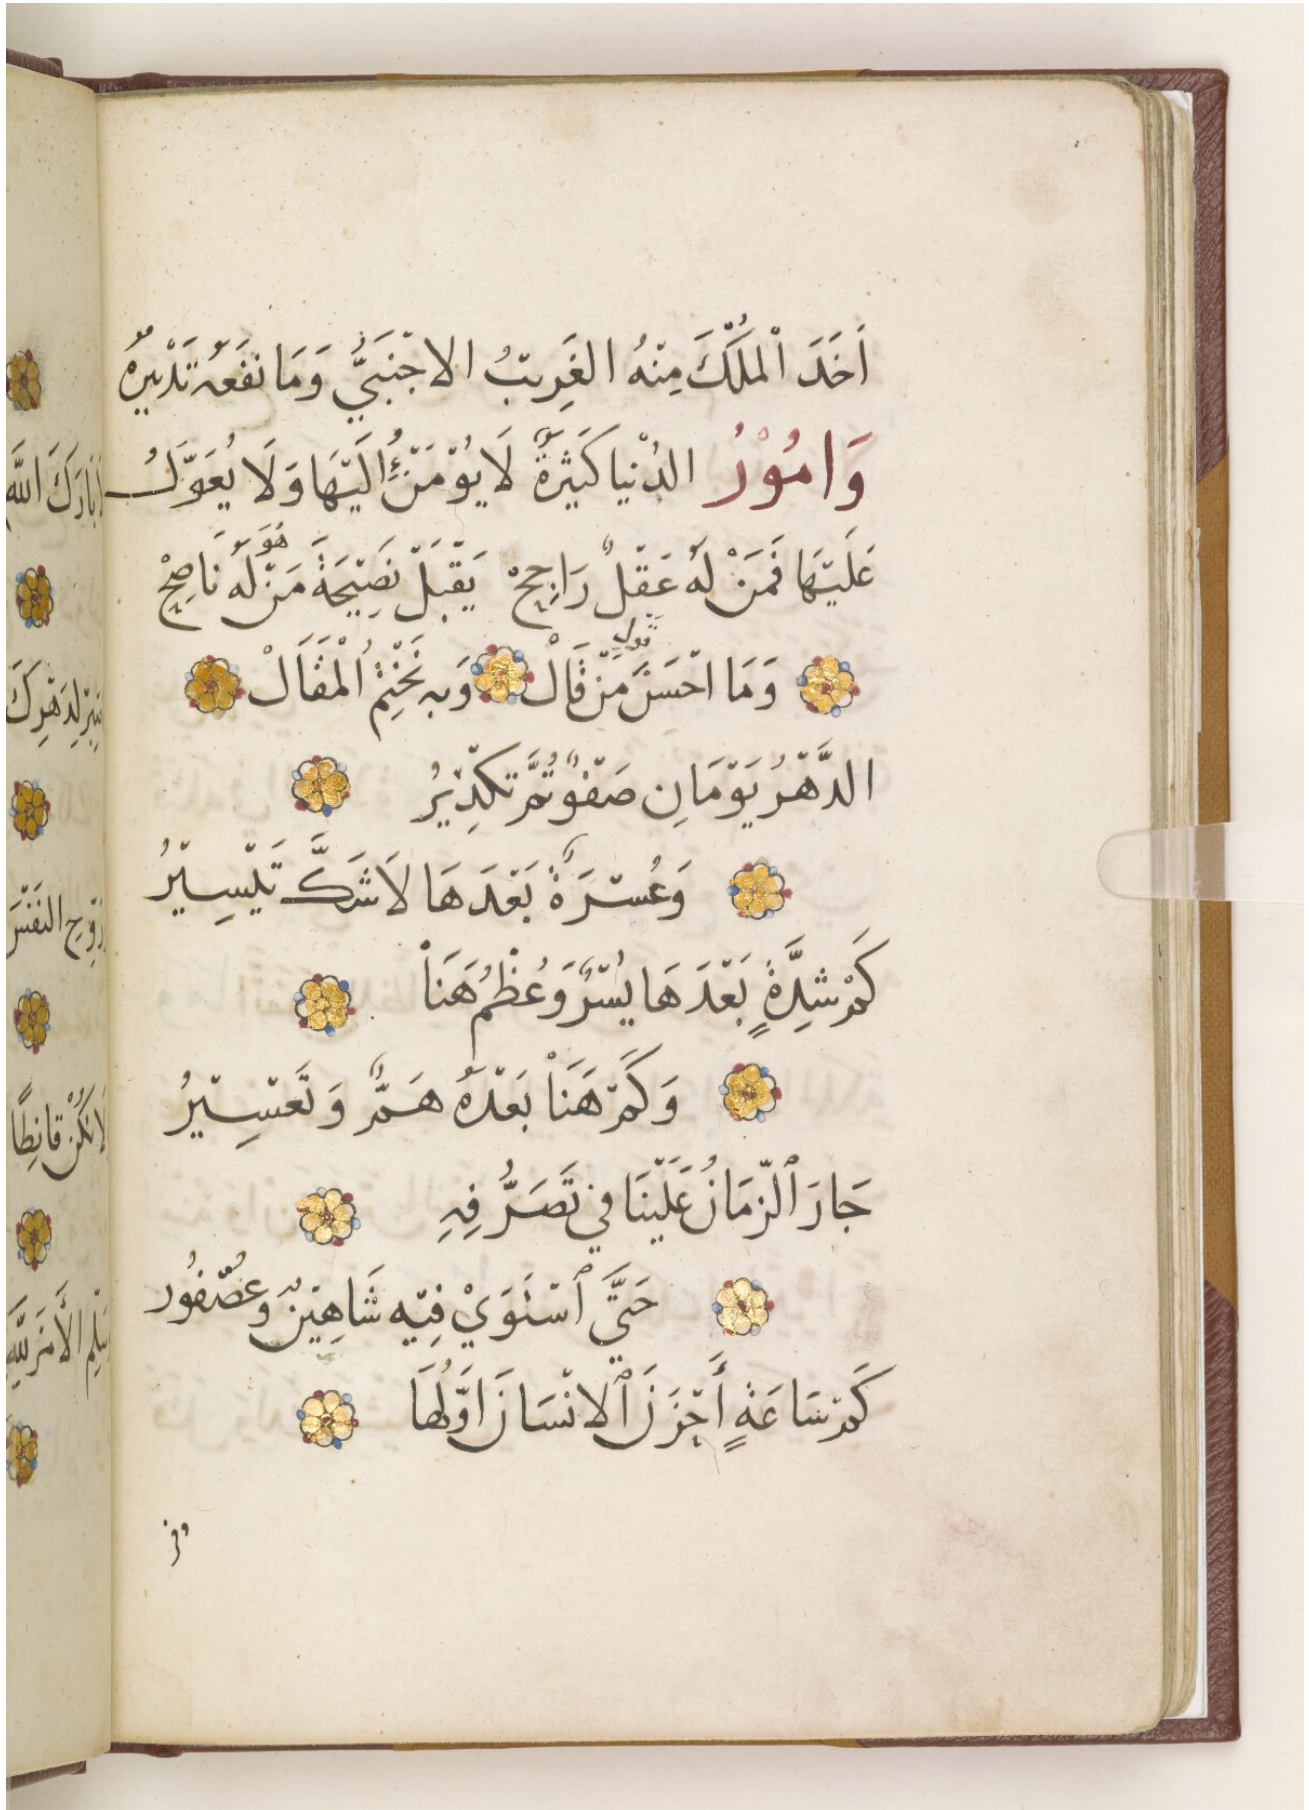 اَخَدَ الْملَكَ مِنْهُ الغَرِيبُ الاجْنَبَيُّ وَمَا نَفَعَهُ تَدْبِيرُهُ
وَامُوْرُ الدُنْيا كَثِيرَةٌ لَا يُوْمَنُ اِلَيْهَا وَلَا يُعَوَّلُ
عَلَيْهَا فَمَنْ لَهُ عَقْلٌ رَاجِحْ يَقْبَلْ نَصِيْحَةَ مَنْ هُوَ لَهُ نَاصِحْ
وَمَا احْسَنَ قول مَنْ قَالْ وَبهِ نَخْتِمْ اُلْمقَالْ
الدَّهْرُ يَوْمَانِ صَفْوٌ ثُمَّ تكْدِيْرُ
وَعُسْرَةٌ بَعْدَهَا لاَ شَكَّ تَيْسِيْرُ
كَمْ شِدَّةٍ بَعْدَهَا يُسْرٌ وَعُظْمُ هَنَاْ
وَكَمْ هَنَاْ بَعْدَهُ هَمٌّ وَتَعْسِيْرُ
جَارَ اْلزّمَانُ عَلَيْنَا في تَصَرُّفِهِ
حَتَّي اْسْتَوَيْ فِيْهِ شَاهِيْنٌ وعُصْفُور
كَمْ سَاعَةٍ أَحْزَنَ اْلانْسَانَ اَوَّلُهَا
وفر
اَبَادَكَ اللَّه
لِدَهْرِكَ
النَفْسَ
لَا تَكُنْ قَانِطًا
سَلِّمِ الأَمْرَ لِلَّهِ